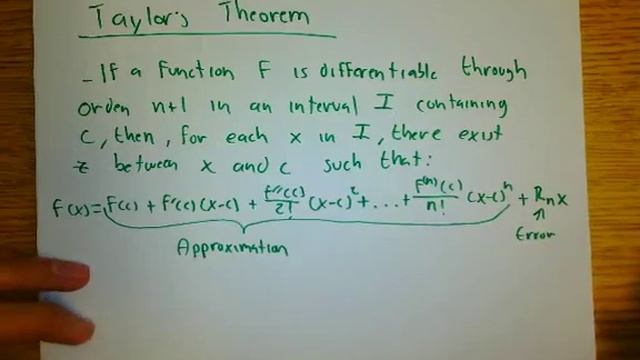 Taylor's Theorem
- If a function F is differentiable through
orden n+1 in an interval I containing
c, then, for each x in I, there exist
z between x and c such that:
f(x)= f(c) + f'(c)(x-c) + f''(c)/2! (x-c)² + ... + f⁽ⁿ⁾(c)/n! (x-c)ⁿ + Rₙx
Approximation
Error